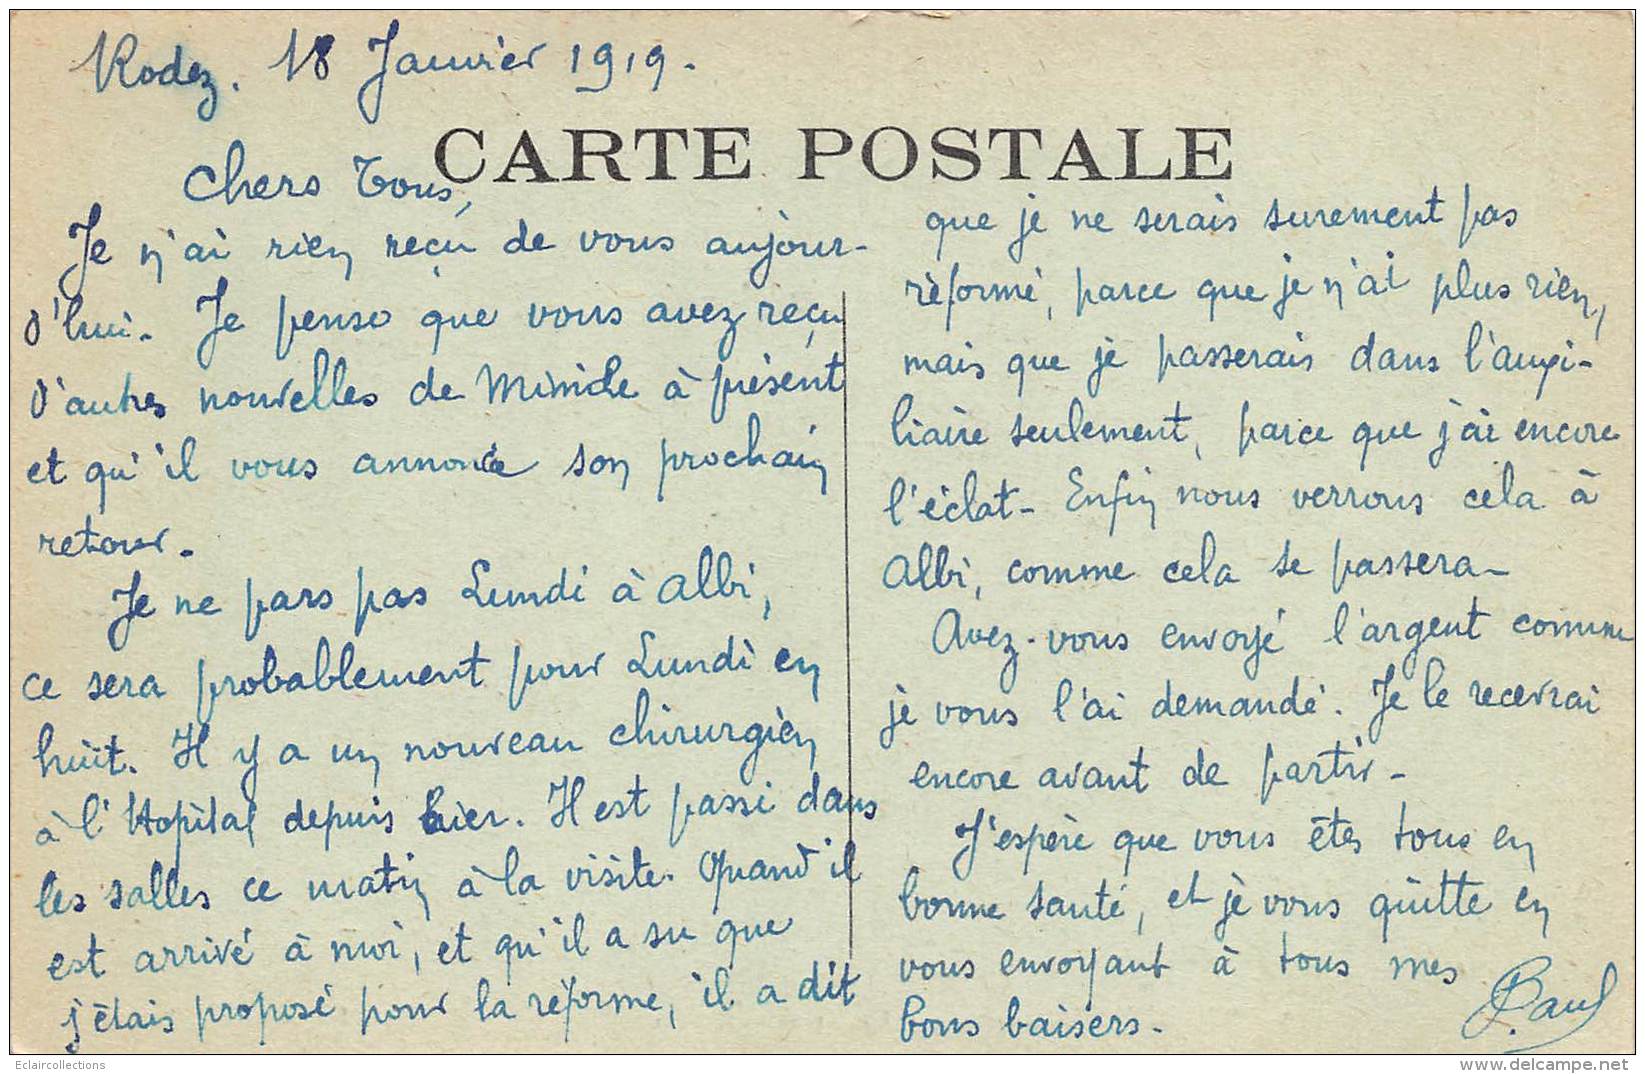 Rodez. 18 Janvier 1919.
CARTE POSTALE
Chers Tous,
Je n'ai rien reçu de vous aujour-
d'hui. Je pense que vous avez reçu
d'autres nouvelles de Mimile à présent
et qu'il vous annonce son prochain
retour.
Je ne pars pas Lundi à Albi,
ce sera probablement pour Lundi en
huit. Il y a un nouveau chirurgien
à l'Hopital depuis hier. Il est passé dans
les salles ce matin à la visite. Quand il
est arrivé à moi, et qu'il a su que
j'étais proposé pour la réforme, il a dit
que je ne serais surement pas
réformé, parce que je n'ai plus rien,
mais que je passerais dans l'auxi-
liaire seulement, parce que j'ai encore
l'éclat - Enfin nous verrons cela à
Albi, comme cela se passera -
Avez-vous envoyé l'argent comme
je vous l'ai demandé. Je le recevrai
encore avant de partir -
J'espère que vous êtes tous en
bonne santé, et je vous quitte en
vous envoyant à tous mes
bons baisers -
Paul
Eclaircollections
delcampe.net